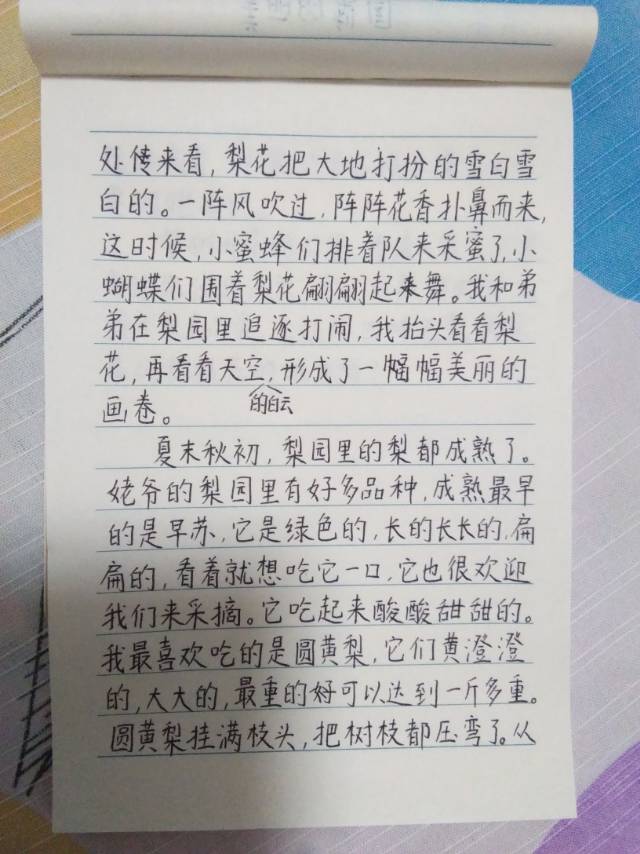 处传来看,梨花把大地打扮的雪白雪
白的。一阵风吹过,阵阵花香扑鼻而来,
这时候,小蜜蜂们排着队来采蜜了,小
蝴蝶们围着梨花翩翩起来舞。我和弟
弟在梨园里追逐打闹,我抬头看看梨
花,再看看天空,形成了一幅幅美丽的
的白云
画卷。
夏末秋初,梨园里的梨都成熟了。
姥爷的梨园里有好多品种,成熟最早
的是早苏,它是绿色的,长的长长的,扁
扁的,看着就想吃它一口,它也很欢迎
我们来采摘。它吃起来酸酸甜甜的。
我最喜欢吃的是圆黄梨,它们黄澄澄
的,大大的,最重的好可以达到一斤多重。
圆黄梨挂满枝头,把树枝都压弯了。从